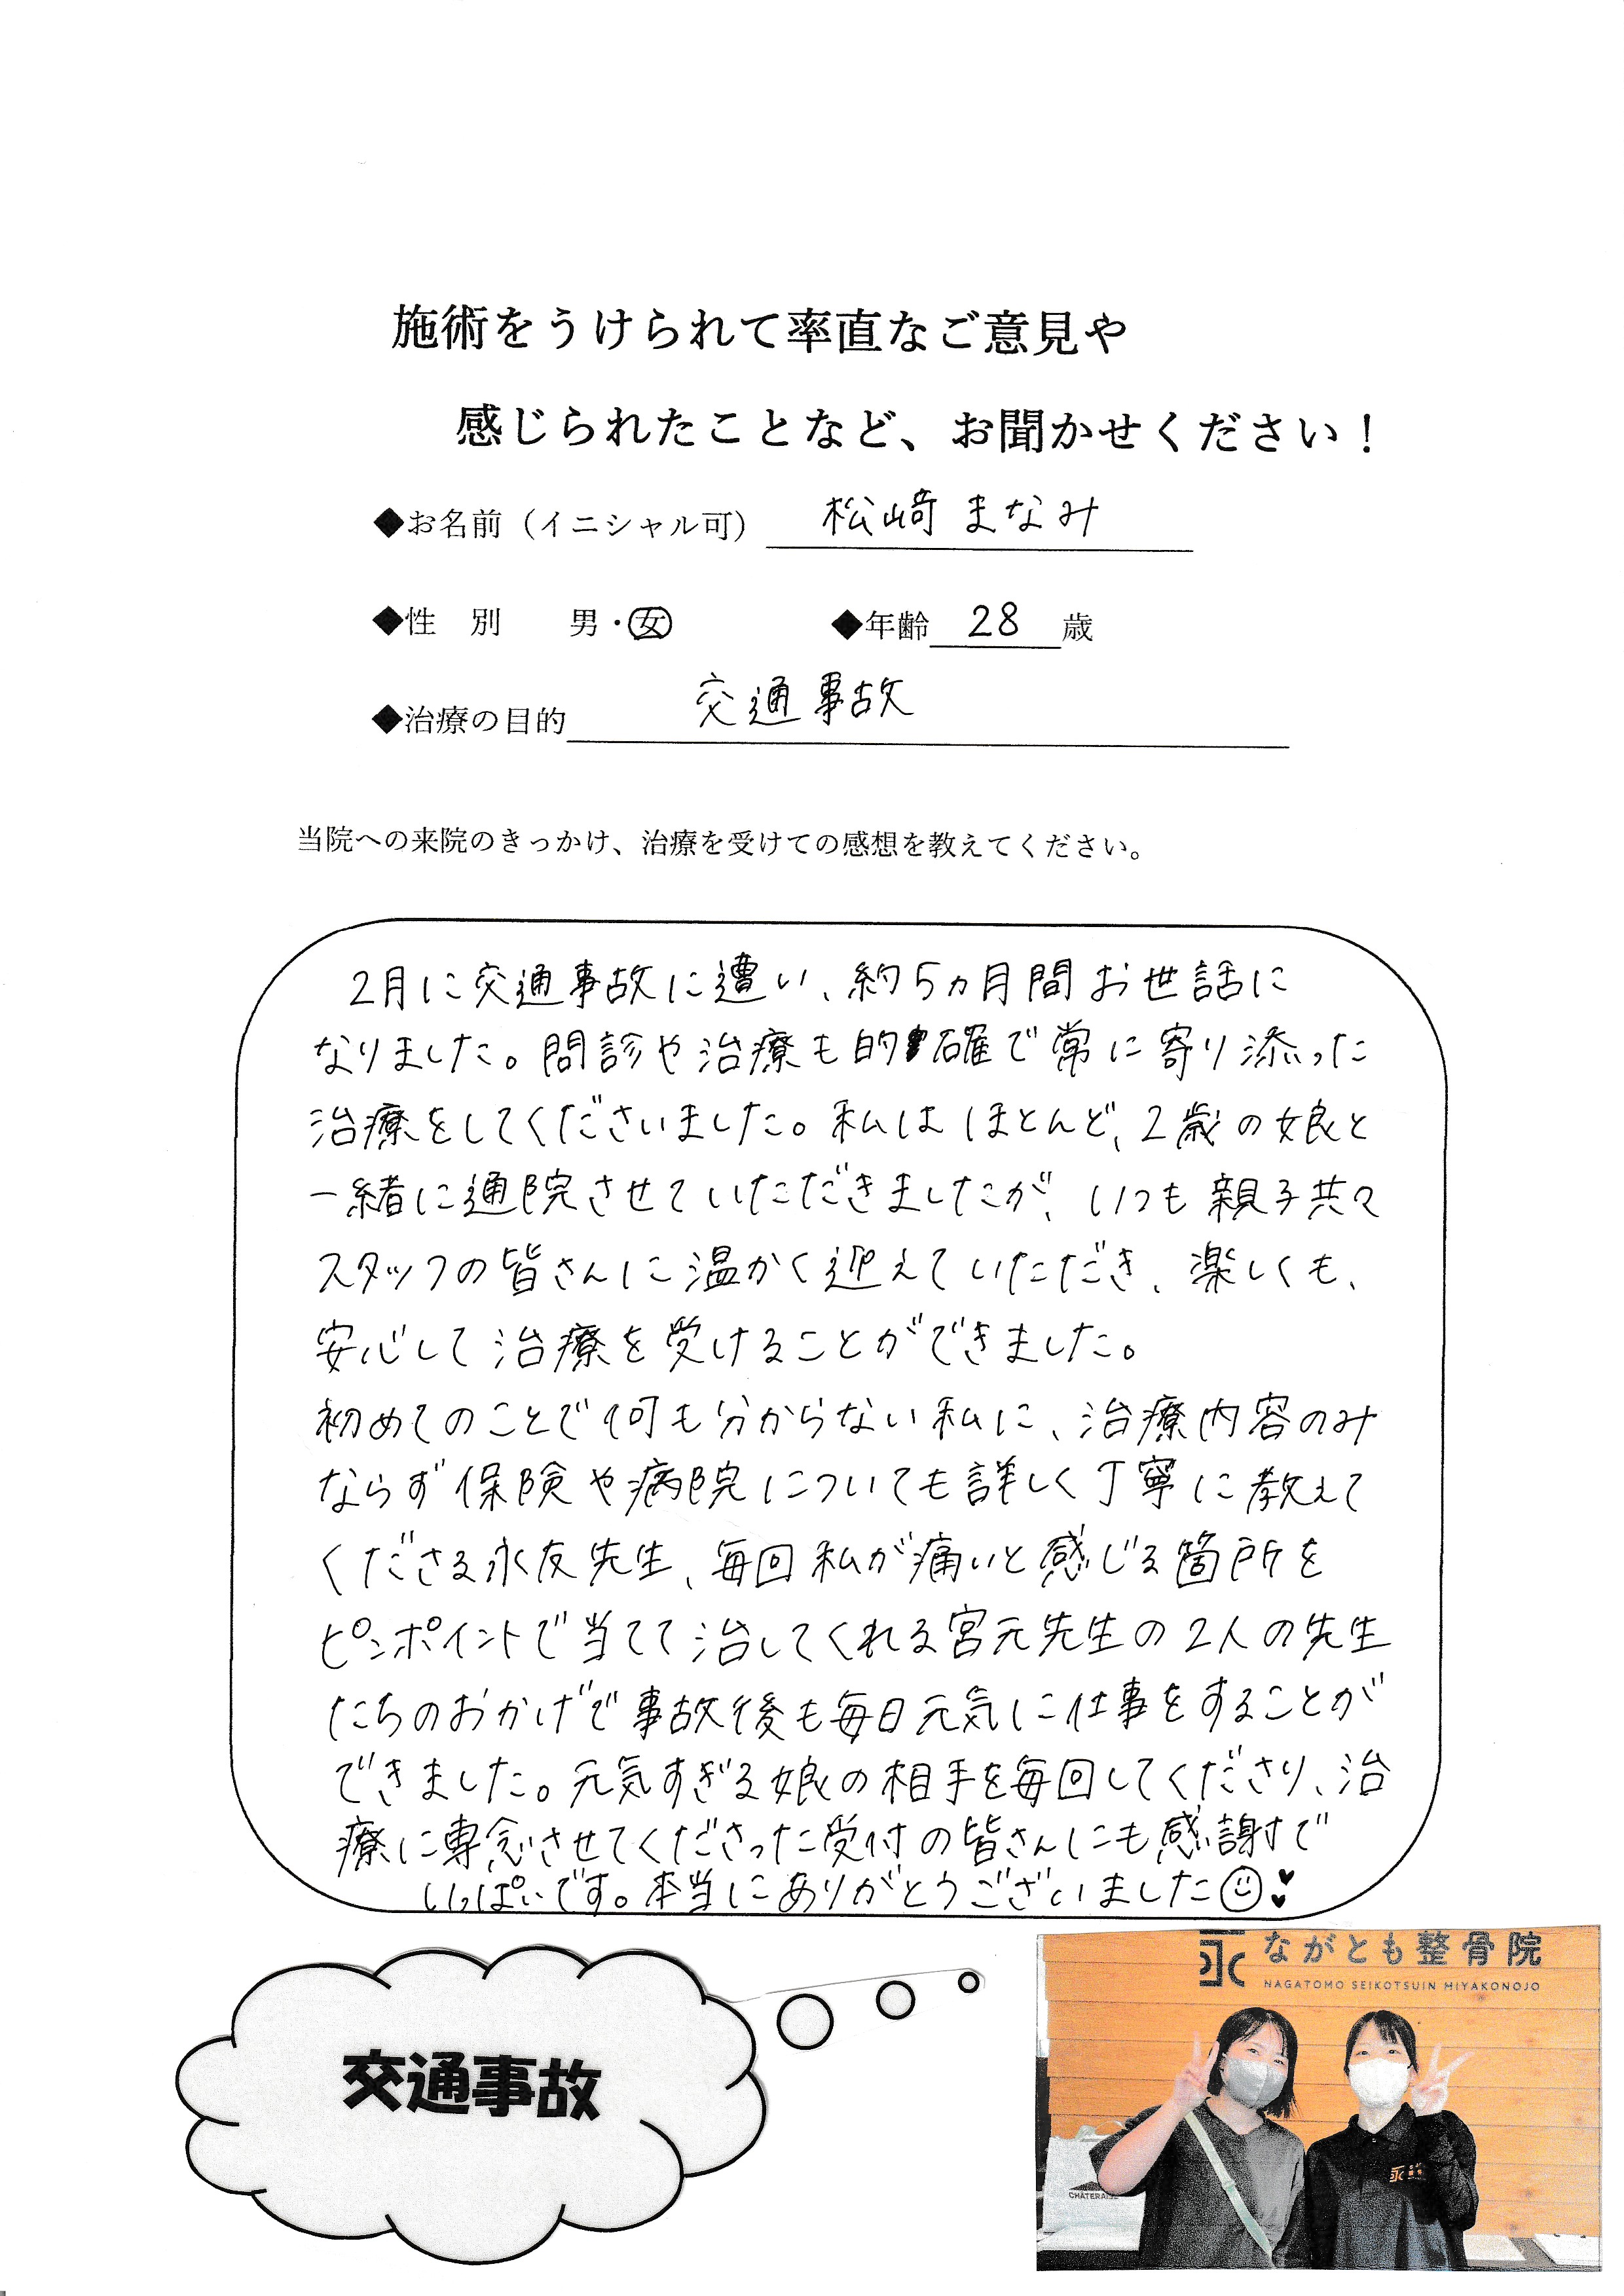 施術をうけられて率直なご意見や
感じられたことなど、お聞かせください！
◆お名前（イニシャル可） 松﨑 まなみ
◆性 別 男・女 ◆年齢 28 歳
◆治療の目的 交通事故
当院への来院のきっかけ、治療を受けての感想を教えてください。
2月に交通事故に遭い、約5ヵ月間お世話に
なりました。問診や治療も的確で常に寄り添った
治療をしてくださいました。私はほとんど、2歳の娘と
一緒に通院させていただきましたが、いつも親子共々
スタッフの皆さんに温かく迎えていただき、楽しくも、
安心して治療を受けることができました。
初めてのことで何も分からない私に、治療内容のみ
ならず保険や病院についても詳しく丁寧に教えて
くださる永友先生、毎回私が痛いと感じる箇所を
ピンポイントで当てて治してくれる宮元先生の2人の先生
たちのおかげで事故後も毎日元気に仕事をすることが
できました。元気すぎる娘の相手を毎回してくださり、治
療に専念させてくださった受付の皆さんにも感謝で
いっぱいです。本当にありがとうございました
交通事故
永 ながとも整骨院
NAGATOMO SEIKOTSUIN MIYAKONOJO
CHATERAISE